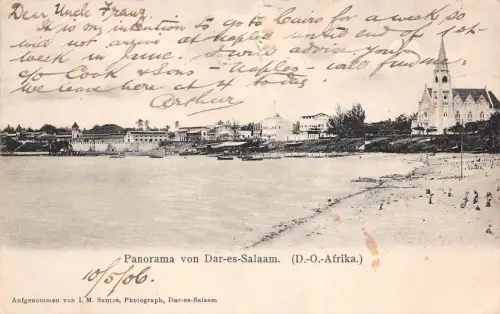 Dear Uncle Franz
It is my intention to go to Cairo for a week so
will not arrive at Naples until end of 1st
week in June. I will advise you
c/o Cook & Sons - Naples - will find me.
We leave here at 4 today.
Arthur
Panorama von Dar-es-Salaam. (D.-O.-Afrika.)
10/5/06.
Aufgenommen von I. M. Santos, Photograph, Dar-es-Salaam